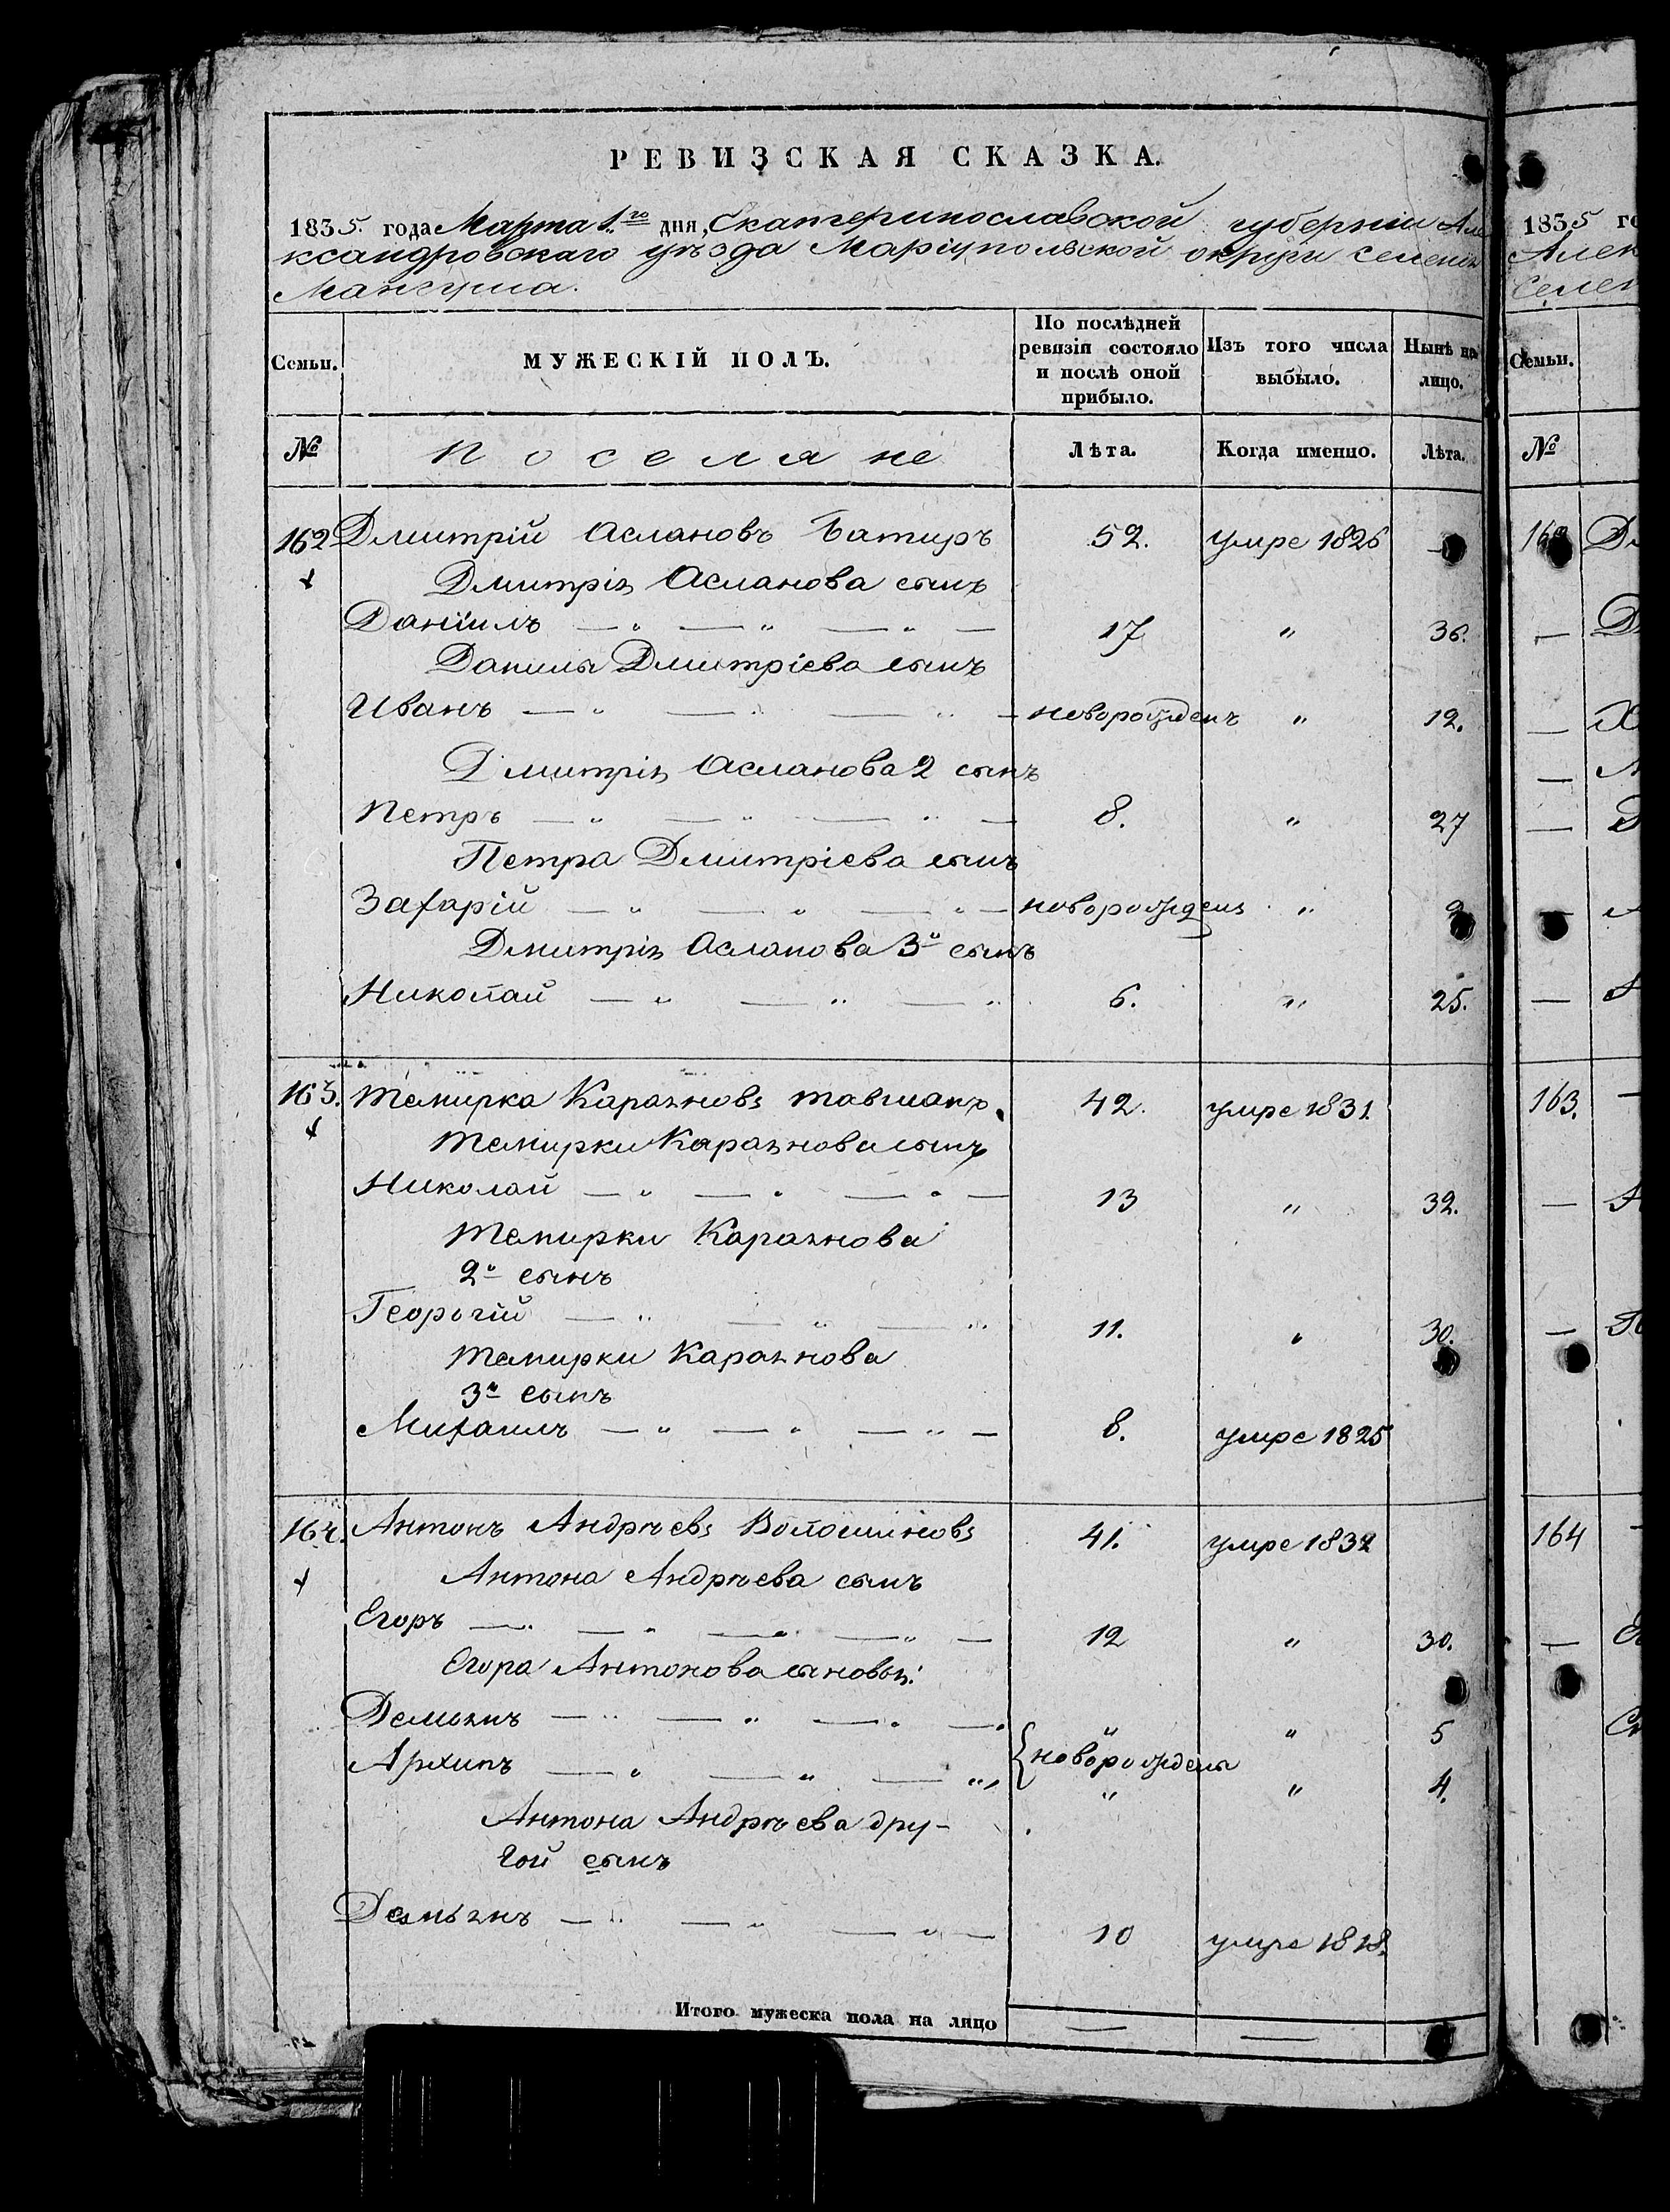 РЕВИЗСКАЯ СКАЗКА.
1835. года Марта 1го дня, Екатеринославской губернии Але
ксандровскаго уѣзда Маріупольской округи селенія
Мангуша.
Семьи.
МУЖЕСКІЙ ПОЛЪ.
По послѣдней
ревизіи состояло
и послѣ оной
прибыло.
Изъ того числа
выбыло.
Нынѣ на
лицо.
№
Поселяне
Лѣта.
Когда именно.
Лѣта.
162 Дмитрій Аслановъ Батиръ 52. умре 1826 —
Дмитрія Асланова сынъ
Даніилъ — " — " — " — 17 " 36.
Данила Дмитріева сынъ
Иванъ — " — " — " — новорожденъ " 12.
Дмитрія Асланова 2 сынъ
Петръ — " — " — " — 8. " 27
Петра Дмитріева сынъ
Захарій — " — " — " — новорожденъ "
Дмитрія Асланова 3й сынъ
Николай — " — " — " 6. " 25.
163. Темирка Караяновъ Тавшанъ. 42. умре 1831
Темирки Караянова сынъ
Николай — " — " — " — 13 " 32.
Темирки Караянова
2й сынъ
Георгій — " — " — " 11. " 30.
Темирки Караянова
3й сынъ
Михаилъ — " — " — " — 8. умре 1825
164. Антонъ Андрѣевъ Волошиновъ 41. умре 1832
Антона Андрѣева сынъ
Егоръ — " — " — " — " — 12 " 30.
Егора Антонова сыновья:
Демьянъ — " — " — " — " " 5
{новорождены
Архипъ — " — " — " " " 4.
Антона Андрѣева дру-
гой сынъ
Демьянъ — " — " — " — 10 умре 1818.
Итого мужеска пола на лицо — —
1835 го
Алек
Селен
Семьи.
№
162
163.
164